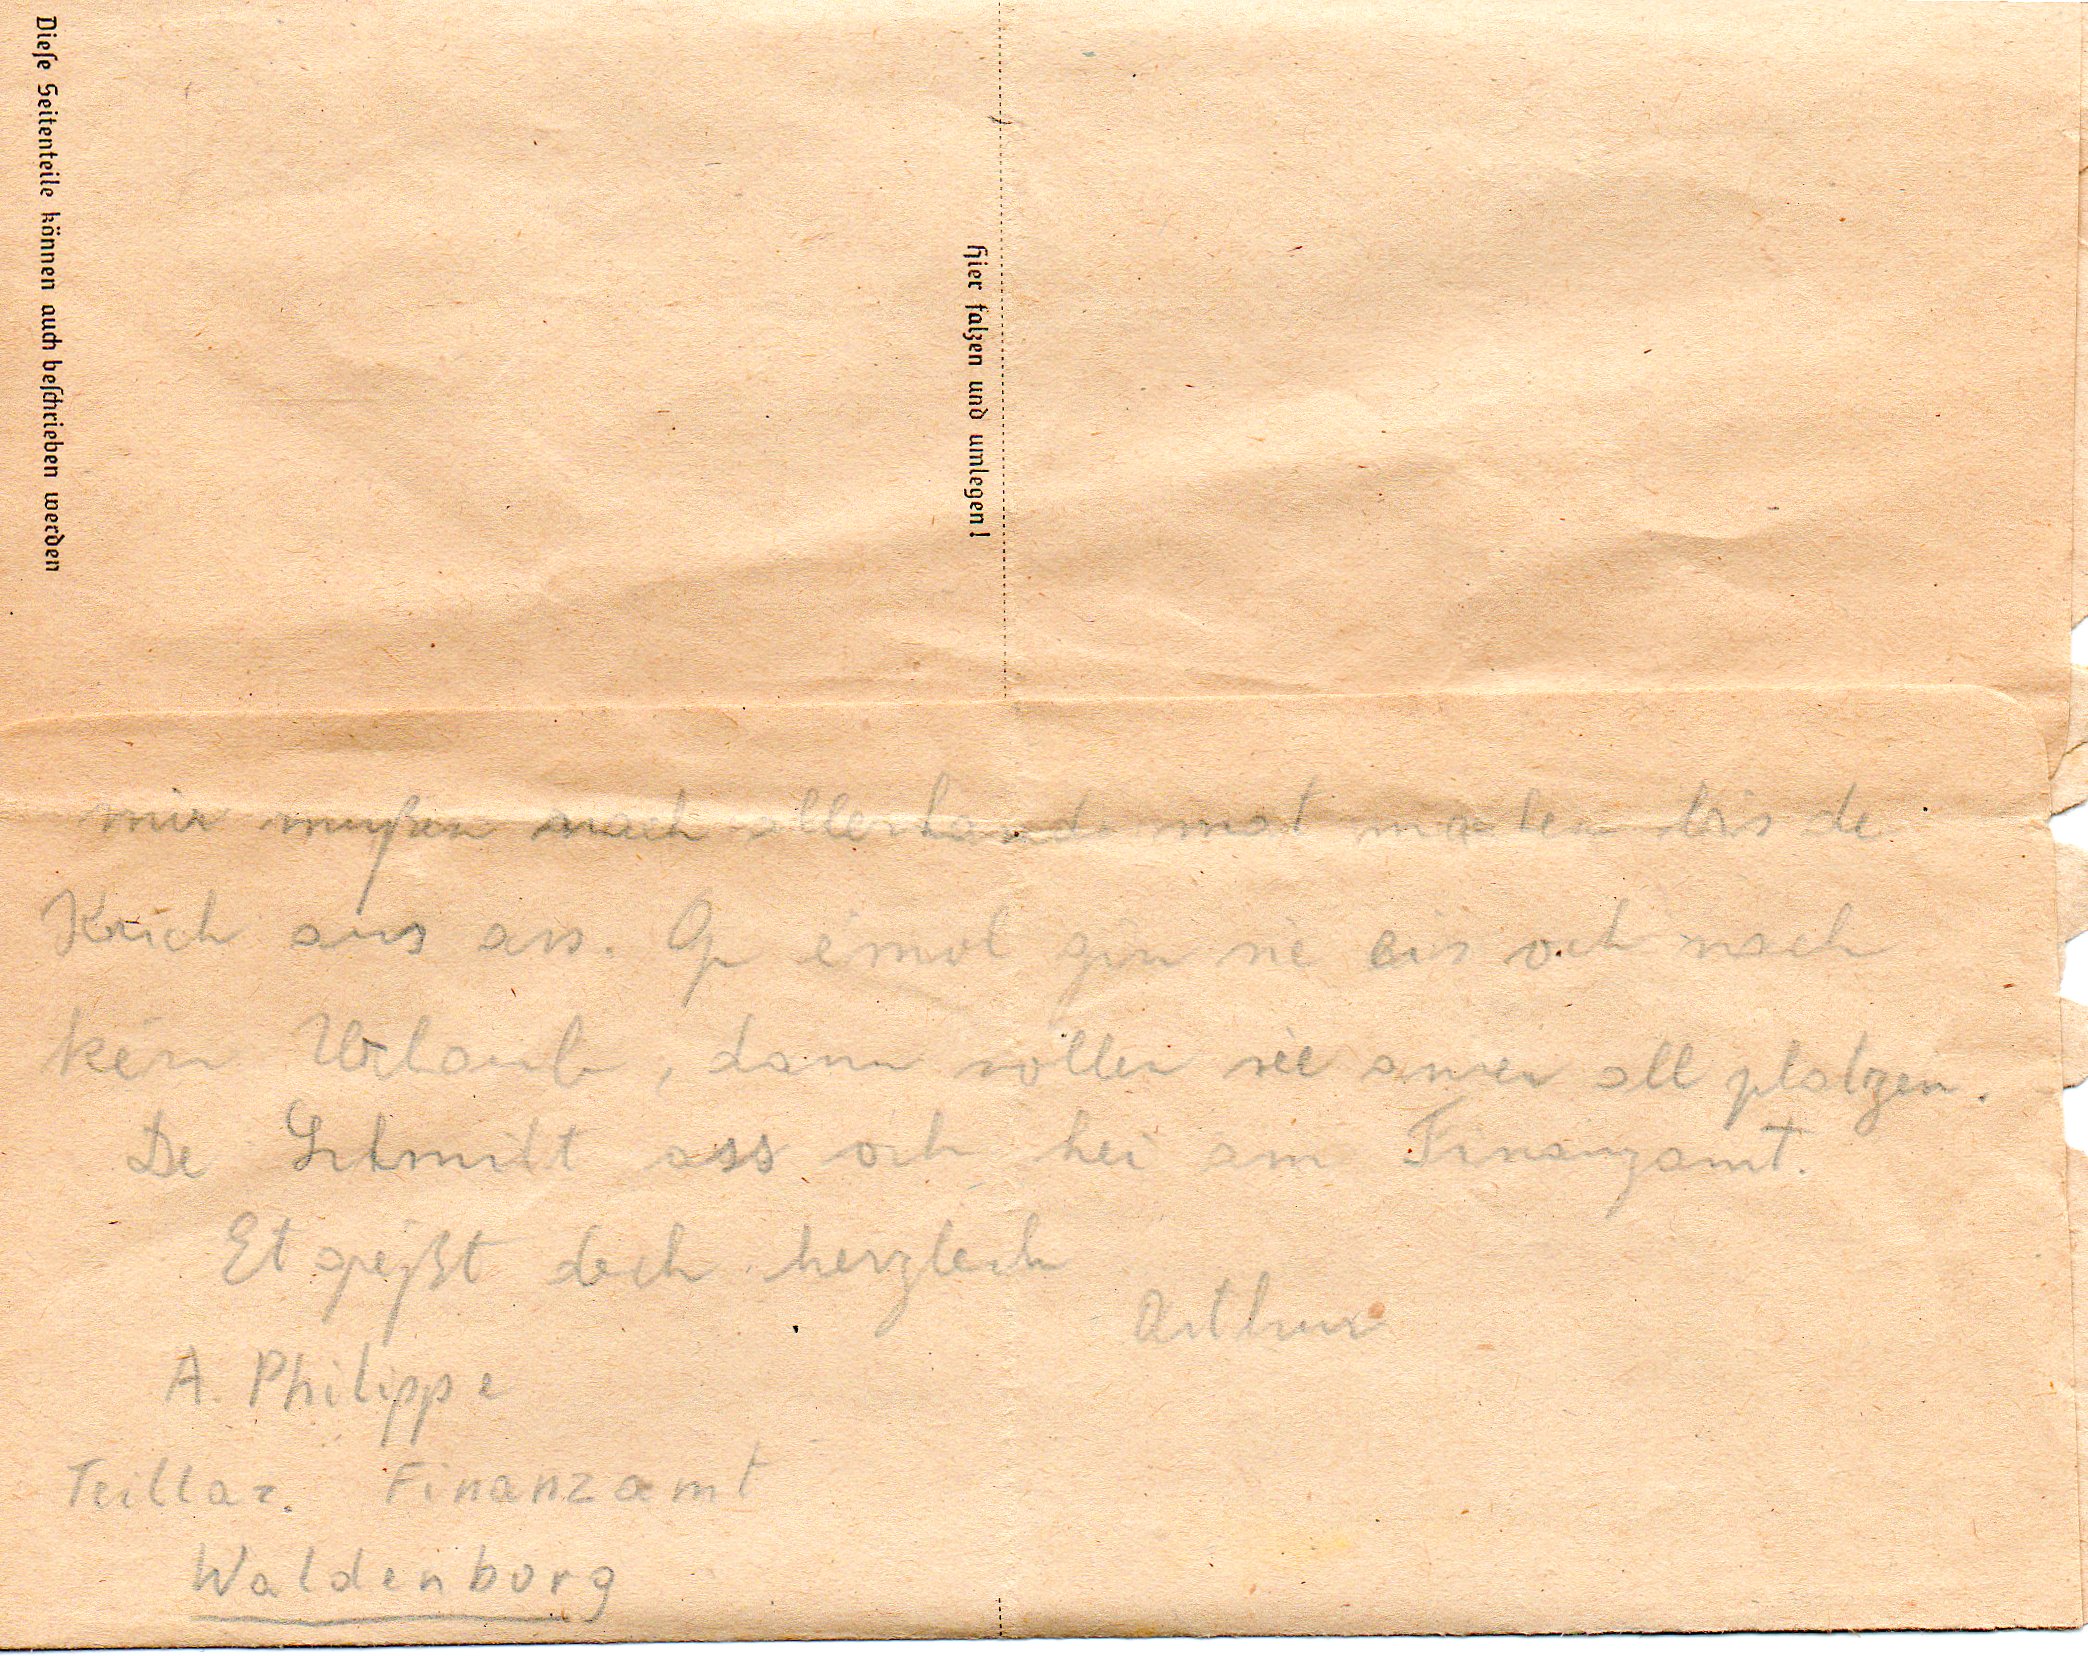 Diese Seitenteile können auch beschrieben werden
Hier falzen und umlegen!
mir mußen nach allerhand mat maken bis de
Krich aus ass. Op eimol gin sie eis och nach
kên Urlaub, dann sollen sie awer all platzen.
De Schmitt ass och hei am Finanzamt.
Et gréßt dech herzlech
Arthur
A. Philippe
Teillar. Finanzamt
Waldenburg